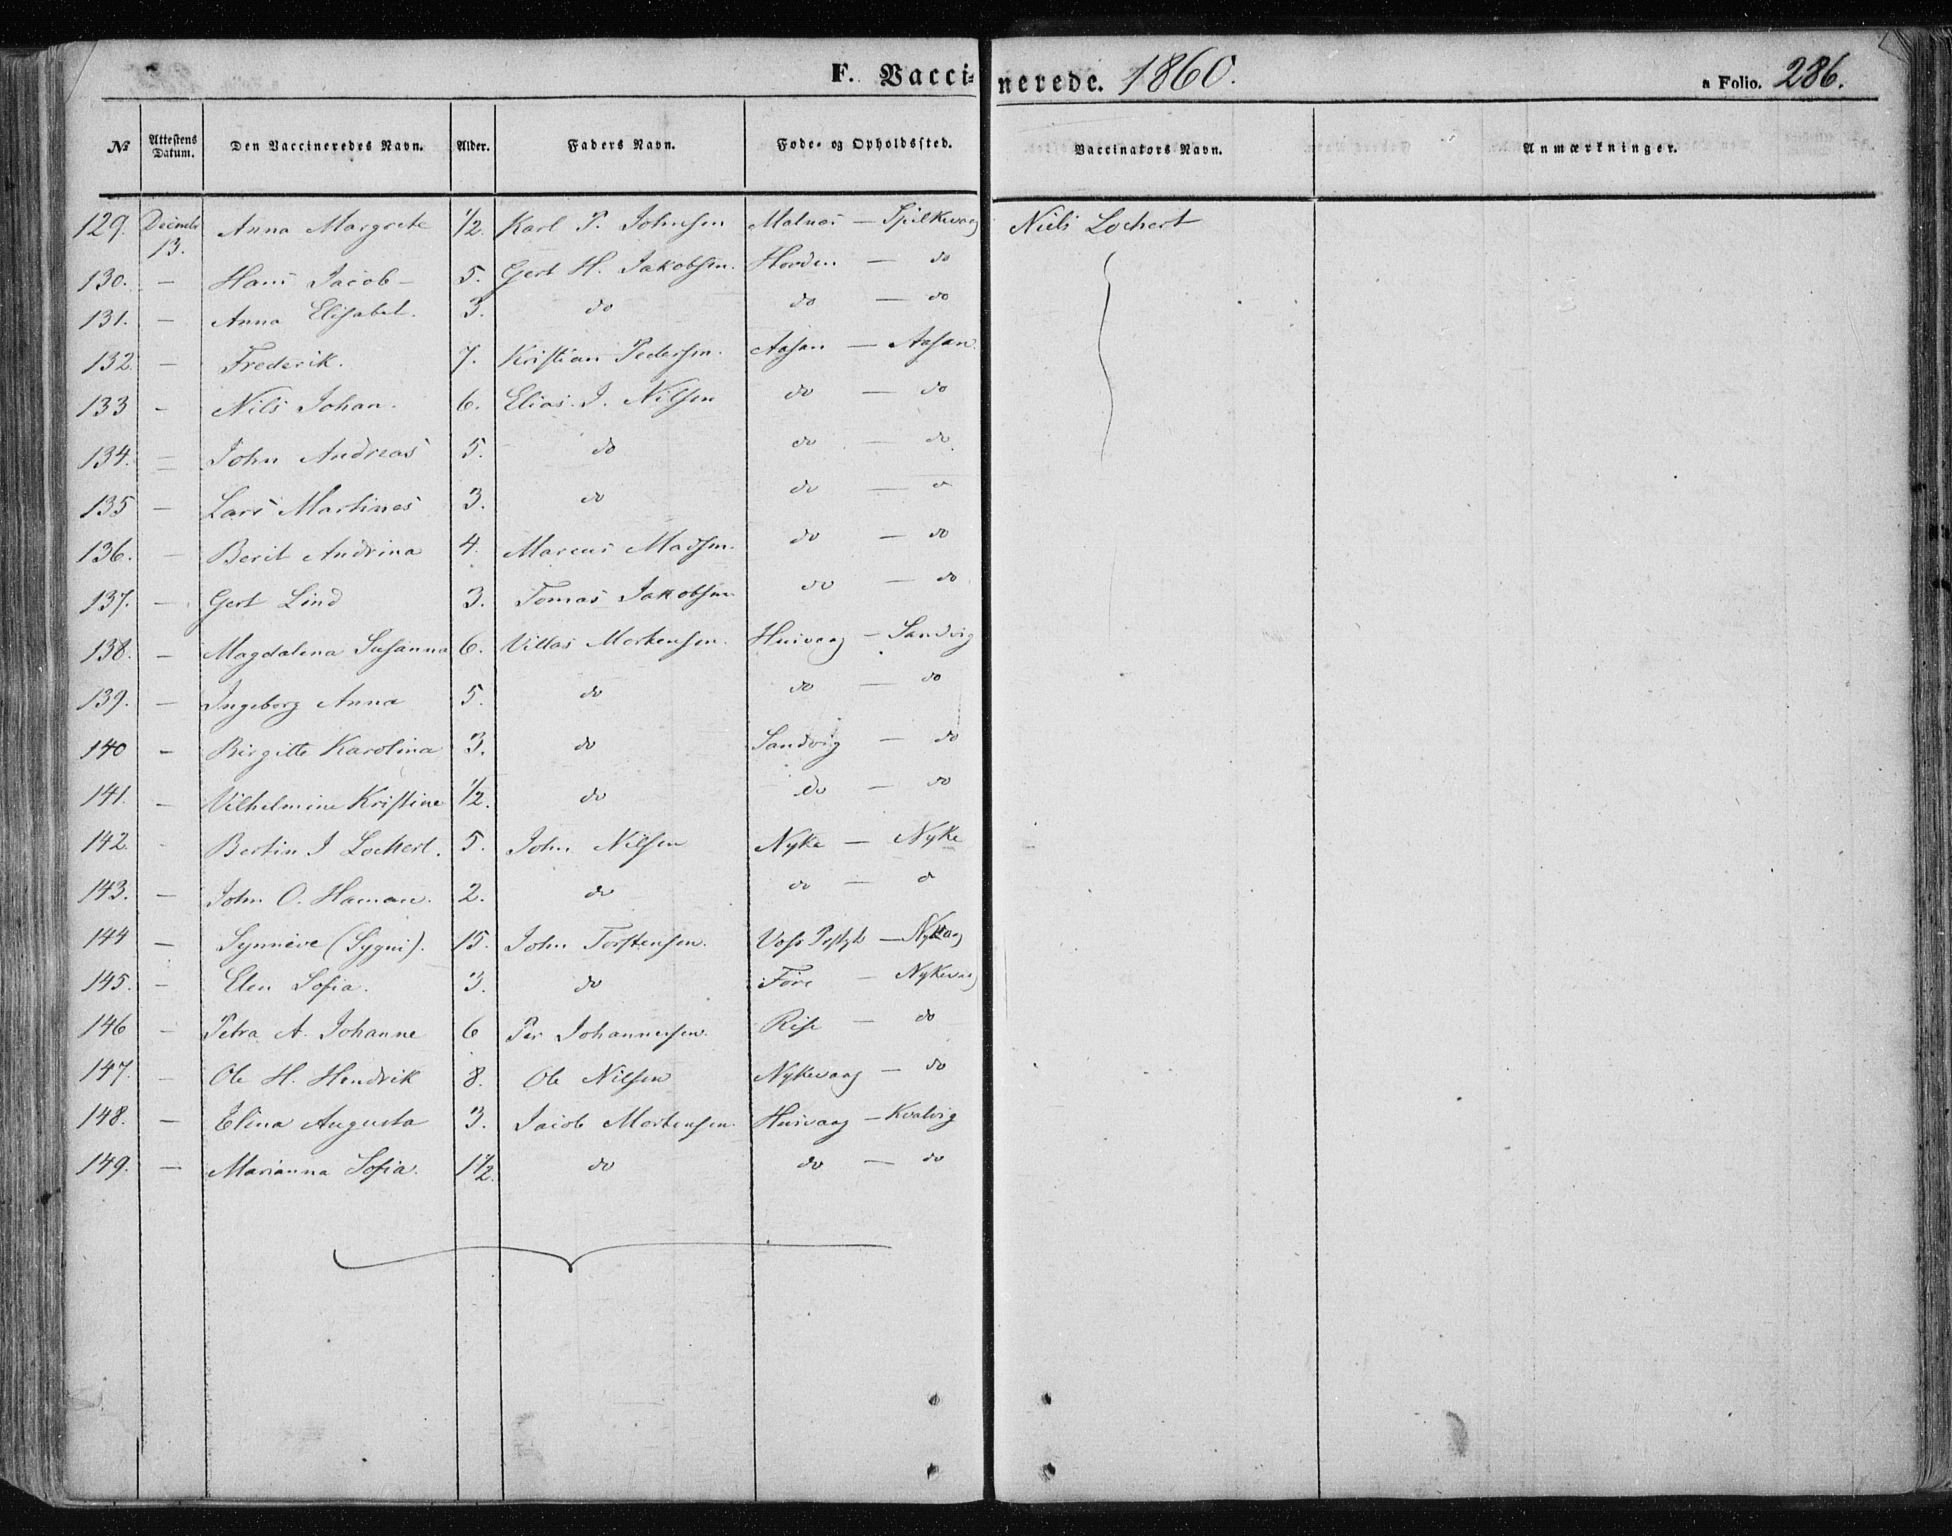 F. Vaccinerede. 1860.
a Folio. 286.
№ Attestens Datum. Den Vaccineredes Navn. Alder. Faders Navn. Føde- og Opholdssted. Vaccinators Navn. Anmærkninger.
129. Decmbr 13. Anna Margrete 1/2. Karl P. Johnsen Malnæs — Spilkevaag Niels Lochert
130. — Hans Jacob — 5. Gert H. Jakobsen. Hovden — do
131. — Anna Elisabet. 3. do do — do
132. — Frederik. 7. Kristian Pedersen. Aasan — Aasan
133 - Nils Johan. 6. Elias J. Nilsen do — do
134. = John Andreas 5. do do — do.
135 — Lars Martines 3. do do — do
136. — Berit Andrina 4. Marcus Madsen. do — do
137. — Gert Lind 3. Tomas Jakobsen do — do
138. — Magdalena Susanna 6. Villas Mortensen. Husvaag — Sandvig
139. — Ingeborg Anna 5. do do — do
140 — Birgitte Karolina 3. do Sandvig — do
141. — Vilhelmine Kristine 1/2. do do — do
142. - Bertin J Lochert. 5. John Nilsen Nyke — Nyke
143. — John O. Haman. 2. do do — do
144 — Synneve (Sygni). 15. John Torstensen. Voss Prstgb — Nykvaag
145. — Elen Sofia. 3. do Føre — Nykevaag
146 — Petra A. Johanne 6 Per Johannessen. Rise — do
147. — Ole H. Hendrik 8. Ole Nilsen Nykevaag — do
148. — Elena Augusta 3. Jacob Mortensen. Husvaag — Kvalvig
149. — Marianna Sofia. 1 1/2. do do — do